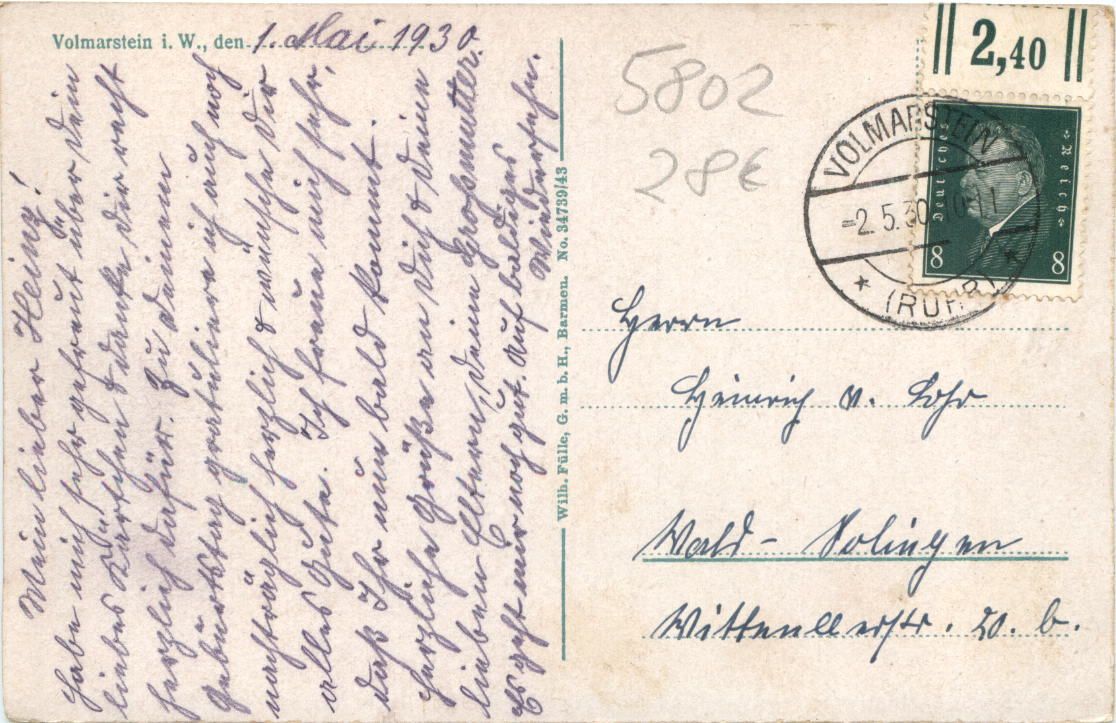 Volmarstein i. W., den 1. Mai 1930
Mein lieber Heinz!
Habe mich sehr gefreut über Dein
liebes Kärtchen & danke Dir recht
herzlich dafür. Zu Deinem
Geburtstag gratuliere ich auch noch
nachträglich herzlich & wünsche Dir
alles Gute. Ich freue mich sehr,
daß Ihr nun bald kommt.
Herzliche Grüße an Dich & Deine
lieben Eltern, Deine Grosmutter.
Es geht mir noch gut. Auf baldiges
Wiedersehn.
Wilh. Fülle, G. m. b. H., Barmen. No. 34739/43
5802
28€
2,40
VOLMARSTEIN
-2.5.30.10-11
* (RUHR) *
Deutsches Reich
8 8
Herrn
Heinrich v. Lohr
Wald-Solingen
Wittkullerstr. 20. b.